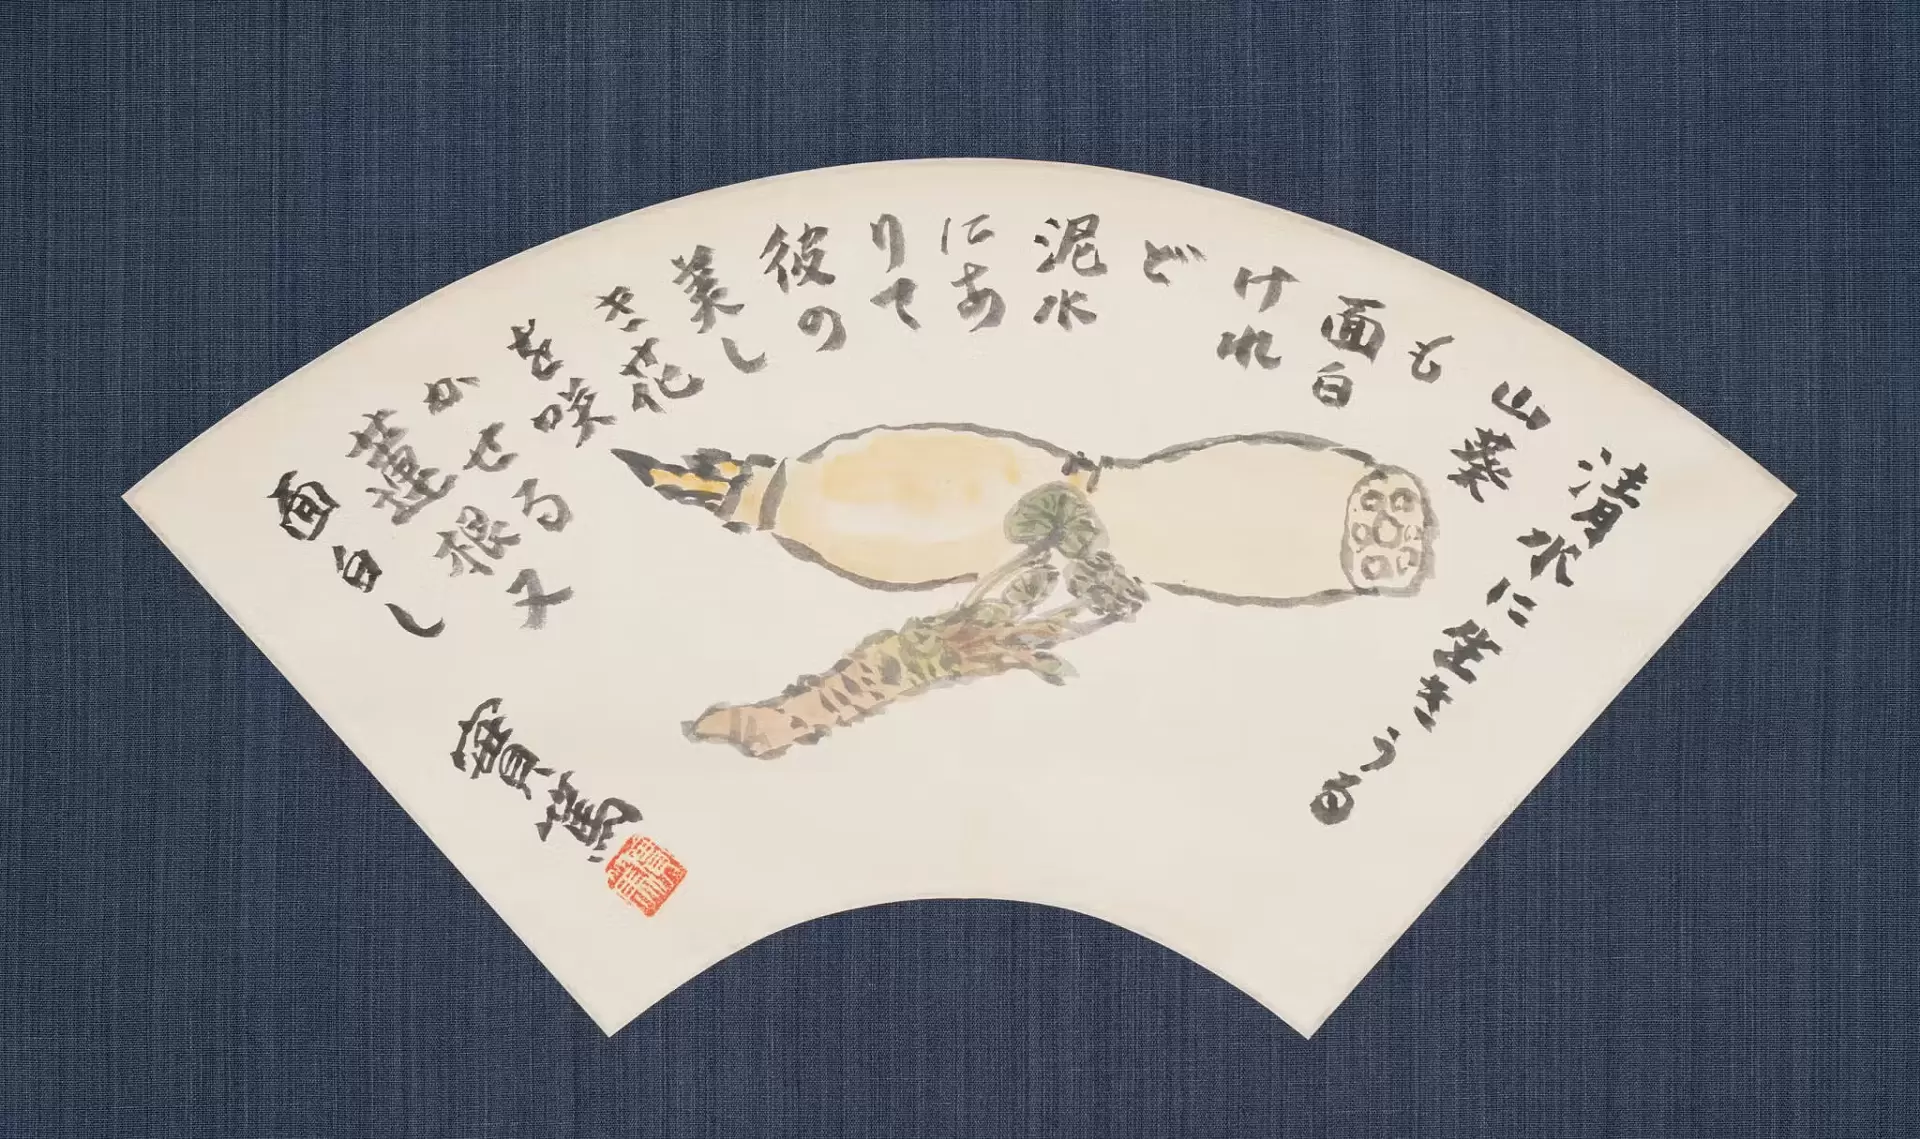 清水に生きうる
山葵
も
面白
けれ
ど
泥水
にあ
りて
彼の
美し
き花
を咲
かせる
蓮根又
面白し
實篤